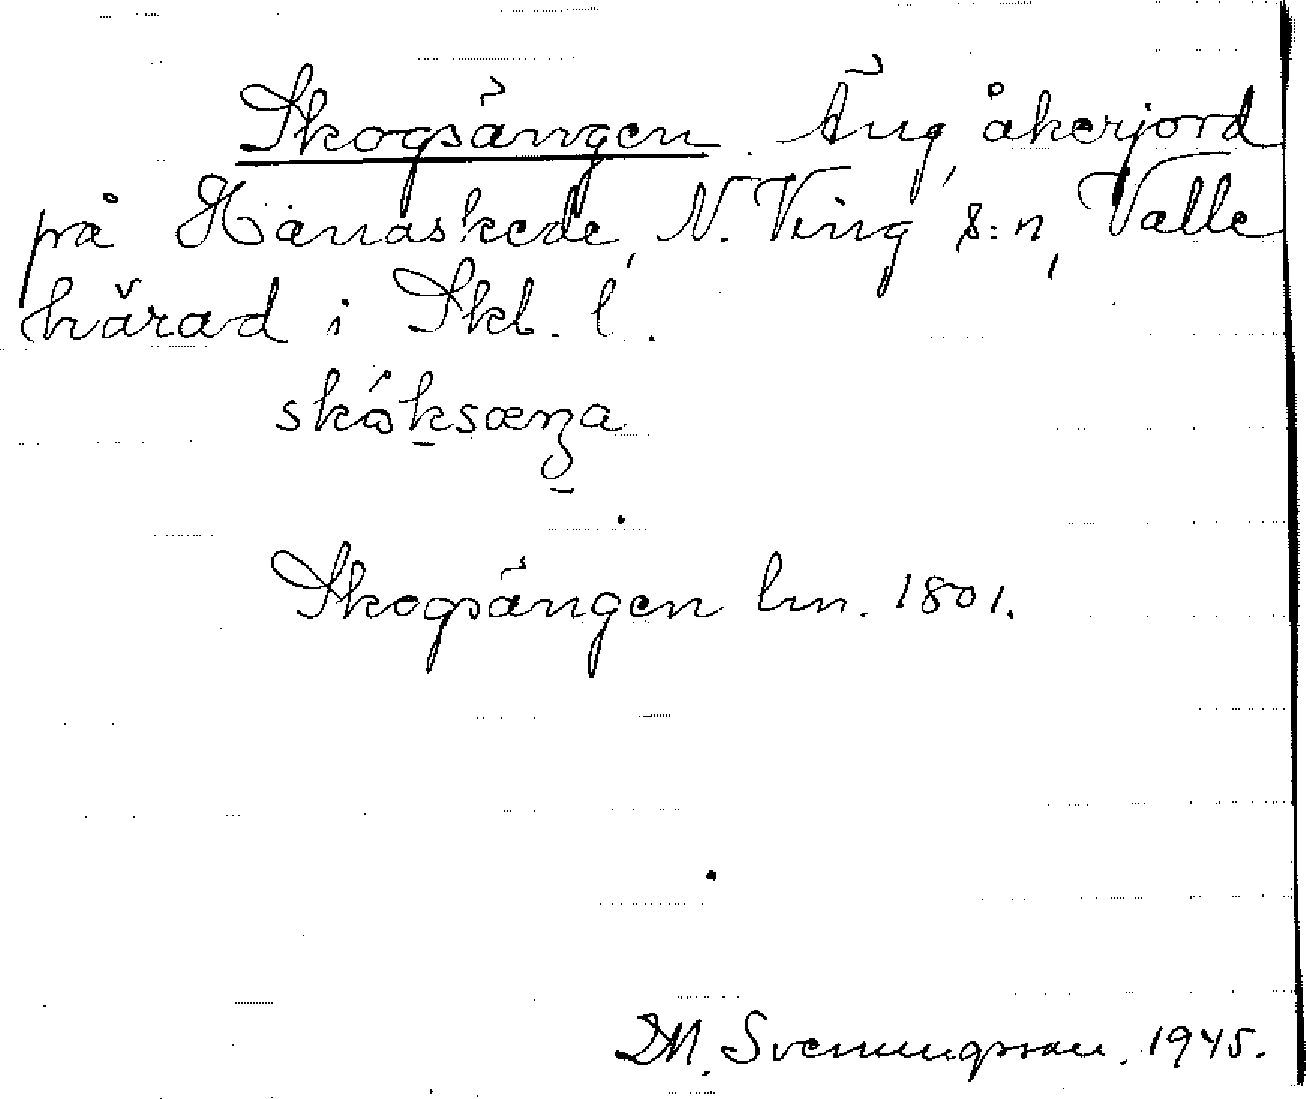 Skogsängen. Äng, åkerjord
på Hänaskede, N. Ving s:n, Valle
härad i Skbl. l.
skóksæŋa
Skogsängen lm. 1801.
D.M. Svenungsson. 1945.